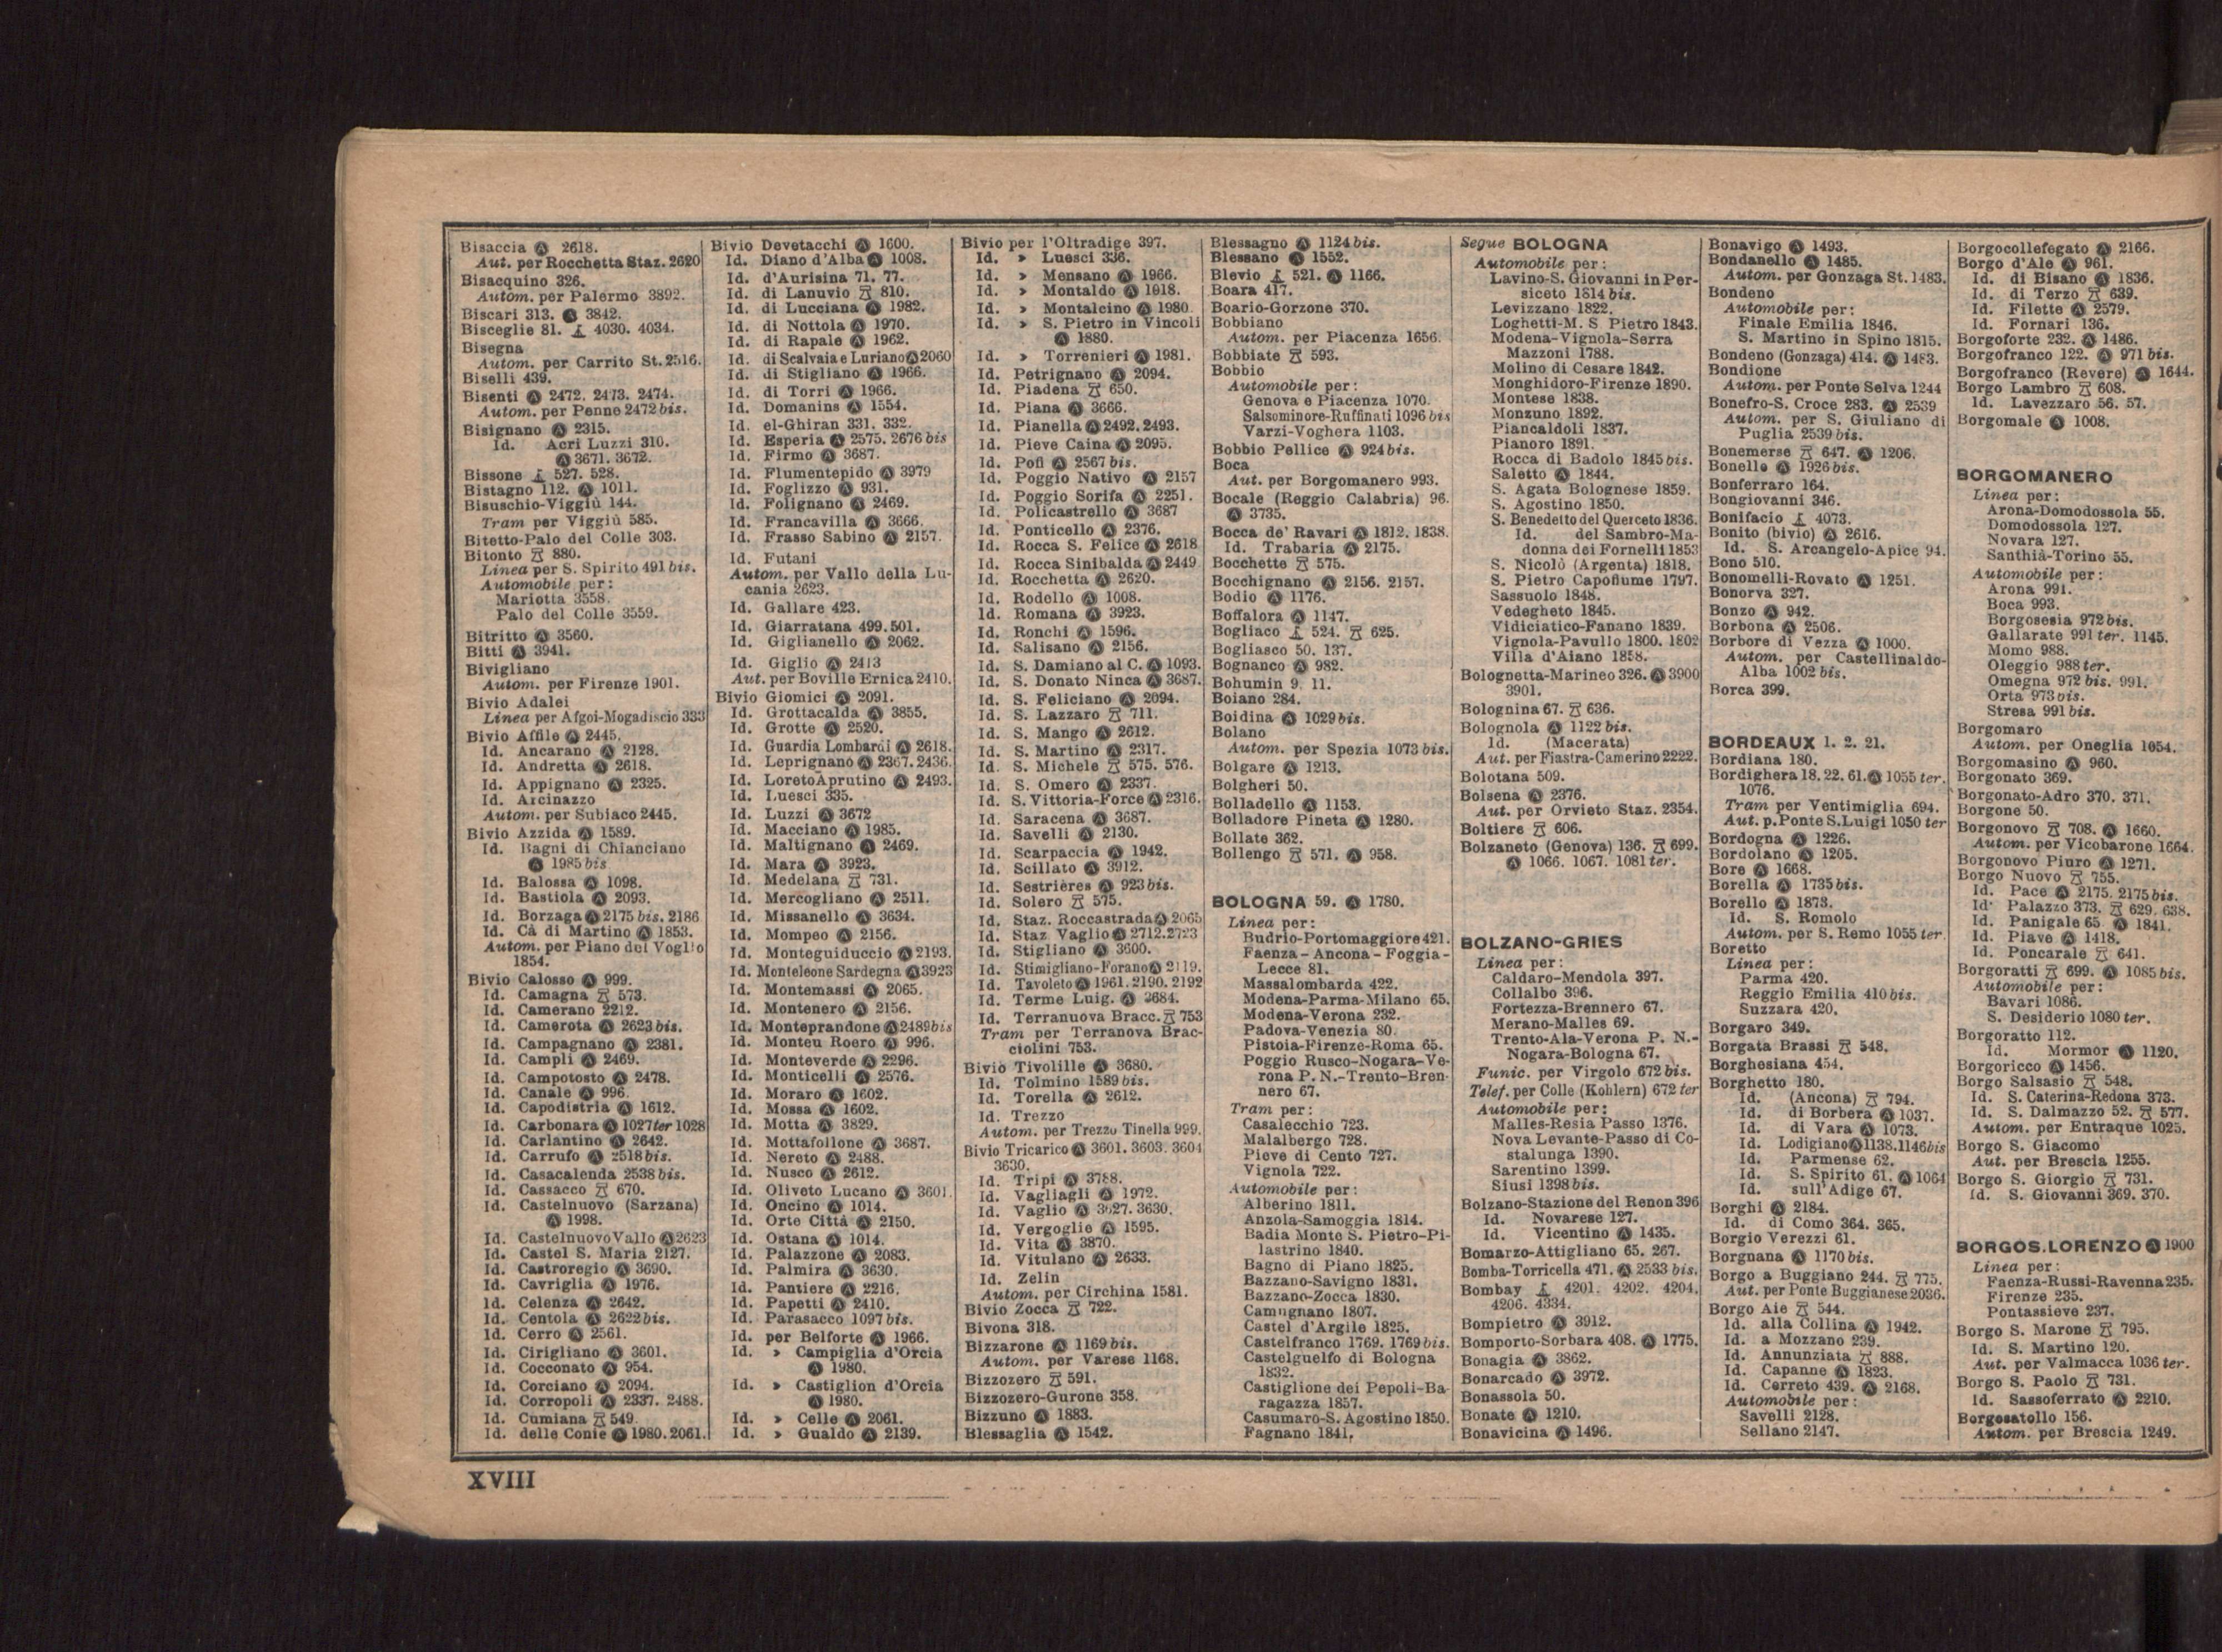 Bisaccia Ⓐ 2618.
Aut. per Rocchetta Staz. 2620
Bisacquino 326.
Autom. per Palermo 3892.
Biscari 313. Ⓐ 3842.
Bisceglie 81. 4030. 4034.
Bisegna
Autom. per Carrito St. 2516.
Biselli 439.
Bisenti Ⓐ 2472. 2473. 2474.
Autom. per Penne 2472 bis.
Bisignano Ⓐ 2315.
Id. Acri Luzzi 310.
Ⓐ 3671. 3672.
Bissone 527. 528.
Bistagno 112. Ⓐ 1011.
Bisuschio-Viggiù 144.
Tram per Viggiù 585.
Bitetto-Palo del Colle 303.
Bitonto 880.
Linea per S. Spirito 491 bis.
Automobile per:
Mariotta 3558.
Palo del Colle 3559.
Bitritto Ⓐ 3560.
Bitti Ⓐ 3941.
Bivigliano
Autom. per Firenze 1901.
Bivio Adalei
Linea per Afgoi-Mogadiscio 333
Bivio Affile Ⓐ 2445.
Id. Ancarano Ⓐ 2128.
Id. Andretta Ⓐ 2618.
Id. Appignano Ⓐ 2325.
Id. Arcinazzo
Autom. per Subiaco 2445.
Bivio Azzida Ⓐ 1589.
Id. Bagni di Chianciano
Ⓐ 1985 bis
Id. Balossa Ⓐ 1098.
Id. Bastiola Ⓐ 2093.
Id. Borzaga Ⓐ 2175 bis. 2186
Id. Cà di Martino Ⓐ 1853.
Autom. per Piano del Voglio
1854.
Bivio Calosso Ⓐ 999.
Id. Camagna 573.
Id. Camerano 2212.
Id. Camerota Ⓐ 2623 bis.
Id. Campagnano Ⓐ 2381.
Id. Campli Ⓐ 2469.
Id. Campotosto Ⓐ 2478.
Id. Canale Ⓐ 996.
Id. Capodistria Ⓐ 1612.
Id. Carbonara Ⓐ 1027 ter 1028
Id. Carlantino Ⓐ 2642.
Id. Carrufo Ⓐ 2518 bis.
Id. Casacalenda 2538 bis.
Id. Cassacco 670.
Id. Castelnuovo (Sarzana)
Ⓐ 1998.
Id. Castelnuovo Vallo Ⓐ 2623
Id. Castel S. Maria 2127.
Id. Castroregio Ⓐ 3690.
Id. Cavriglia Ⓐ 1976.
Id. Celenza Ⓐ 2642.
Id. Centola Ⓐ 2622 bis.
Id. Cerro Ⓐ 2561.
Id. Cirigliano Ⓐ 3601.
Id. Cocconato Ⓐ 954.
Id. Corciano Ⓐ 2094.
Id. Corropoli Ⓐ 2337. 2488.
Id. Cumiana 549.
Id. delle Conie Ⓐ 1980. 2061.
Bivio Devetacchi Ⓐ 1600.
Id. Diano d'Alba Ⓐ 1008.
Id. d'Aurisina 71. 77.
Id. di Lanuvio 810.
Id. di Lucciana Ⓐ 1982.
Id. di Nottola Ⓐ 1970.
Id. di Rapale Ⓐ 1962.
Id. di Scalvaia e Luriano Ⓐ 2060
Id. di Stigliano Ⓐ 1966.
Id. di Torri Ⓐ 1966.
Id. Domanins Ⓐ 1554.
Id. el-Ghiran 331. 332.
Id. Esperia Ⓐ 2575. 2676 bis
Id. Firmo Ⓐ 3687.
Id. Flumentepido Ⓐ 3979
Id. Foglizzo Ⓐ 931.
Id. Folignano Ⓐ 2469.
Id. Francavilla Ⓐ 3666.
Id. Frasso Sabino Ⓐ 2157.
Id. Futani
Autom. per Vallo della Lu-
cania 2623.
Id. Gallare 423.
Id. Giarratana 499. 501.
Id. Giglianello Ⓐ 2062.
Id. Giglio Ⓐ 2413
Aut. per Boville Ernica 2410.
Bivio Giomici Ⓐ 2091.
Id. Grottacalda Ⓐ 3855.
Id. Grotte Ⓐ 2520.
Id. Guardia Lombardi Ⓐ 2618.
Id. Leprignano Ⓐ 2367. 2436.
Id. Loreto Aprutino Ⓐ 2493.
Id. Luesci 335.
Id. Luzzi Ⓐ 3672
Id. Macciano Ⓐ 1985.
Id. Maltignano Ⓐ 2469.
Id. Mara Ⓐ 3923.
Id. Medelana 731.
Id. Mercogliano Ⓐ 2511.
Id. Missanello Ⓐ 3634.
Id. Mompeo Ⓐ 2156.
Id. Monteguiduccio Ⓐ 2193.
Id. Monteleone Sardegna Ⓐ 3923
Id. Montemassi Ⓐ 2065.
Id. Montenero Ⓐ 2156.
Id. Monteprandone Ⓐ 2489 bis
Id. Monteu Roero Ⓐ 996.
Id. Monteverde Ⓐ 2296.
Id. Monticelli Ⓐ 2576.
Id. Moraro Ⓐ 1602.
Id. Mossa Ⓐ 1602.
Id. Motta Ⓐ 3829.
Id. Mottafollone Ⓐ 3687.
Id. Nereto Ⓐ 2488.
Id. Nusco Ⓐ 2612.
Id. Oliveto Lucano Ⓐ 3601.
Id. Oncino Ⓐ 1014.
Id. Orte Città Ⓐ 2150.
Id. Ostana Ⓐ 1014.
Id. Palazzone Ⓐ 2083.
Id. Palmira Ⓐ 3630.
Id. Pantiere Ⓐ 2216.
Id. Papetti Ⓐ 2410.
Id. Parasacco 1097 bis.
Id. per Belforte Ⓐ 1966.
Id. » Campiglia d'Orcia
Ⓐ 1980.
Id. » Castiglion d'Orcia
Ⓐ 1980.
Id. » Celle Ⓐ 2061.
Id. » Gualdo Ⓐ 2139.
Bivio per l'Oltradige 397.
Id. » Luesci 336.
Id. » Mensano Ⓐ 1966.
Id. » Montaldo Ⓐ 1918.
Id. » Montalcino Ⓐ 1980
Id. » S. Pietro in Vincoli
Ⓐ 1880.
Id. » Torrenieri Ⓐ 1981.
Id. Petrignano Ⓐ 2094.
Id. Piadena 650.
Id. Piana Ⓐ 3666.
Id. Pianella Ⓐ 2492. 2493.
Id. Pieve Caina Ⓐ 2095.
Id. Pofi Ⓐ 2567 bis.
Id. Poggio Nativo Ⓐ 2157
Id. Poggio Sorifa Ⓐ 2251.
Id. Policastrello Ⓐ 3687
Id. Ponticello Ⓐ 2376.
Id. Rocca S. Felice Ⓐ 2618
Id. Rocca Sinibalda Ⓐ 2449
Id. Rocchetta Ⓐ 2620.
Id. Rodello Ⓐ 1008.
Id. Romana Ⓐ 3923.
Id. Ronchi Ⓐ 1596.
Id. Salisano Ⓐ 2156.
Id. S. Damiano al C. Ⓐ 1093.
Id. S. Donato Ninca Ⓐ 3687.
Id. S. Feliciano Ⓐ 2094.
Id. S. Lazzaro 711.
Id. S. Mango Ⓐ 2612.
Id. S. Martino Ⓐ 2317.
Id. S. Michele 575. 576.
Id. S. Omero Ⓐ 2337.
Id. S. Vittoria-Force Ⓐ 2316.
Id. Saracena Ⓐ 3687.
Id. Savelli Ⓐ 2130.
Id. Scarpaccia Ⓐ 1942.
Id. Scillato Ⓐ 3912.
Id. Sestrières Ⓐ 923 bis.
Id. Solero 575.
Id. Staz. Roccastrada Ⓐ 2065
Id. Staz Vaglio Ⓐ 2712. 2723
Id. Stigliano Ⓐ 3600.
Id. Stimigliano-Forano Ⓐ 2119.
Id. Tavoleto Ⓐ 1961. 2190. 2192
Id. Terme Luig. Ⓐ 3684.
Id. Terranuova Bracc. 753
Tram per Terranova Brac-
ciolini 753.
Bivio Tivolille Ⓐ 3680.
Id. Tolmino 1589 bis.
Id. Torella Ⓐ 2612.
Id. Trezzo
Autom. per Trezzo Tinella 999.
Bivio Tricarico Ⓐ 3601. 3603. 3604
3630.
Id. Tripi Ⓐ 3788.
Id. Vagliagli Ⓐ 1972.
Id. Vaglio Ⓐ 3627. 3630.
Id. Vergoglie Ⓐ 1595.
Id. Vita Ⓐ 3870.
Id. Vitulano Ⓐ 2633.
Id. Zelin
Autom. per Circhina 1581.
Bivio Zocca 722.
Bivona 318.
Bizzarone Ⓐ 1169 bis.
Autom. per Varese 1168.
Bizzozero 591.
Bizzozero-Gurone 358.
Bizzuno Ⓐ 1883.
Blessaglia Ⓐ 1542.
Blessagno Ⓐ 1124 bis.
Blessano Ⓐ 1552.
Blevio 521. Ⓐ 1166.
Boara 417.
Boario-Gorzone 370.
Bobbiano
Autom. per Piacenza 1656.
Bobbiate 593.
Bobbio
Automobile per:
Genova e Piacenza 1070.
Salsominore-Ruffinati 1096 bis
Varzi-Voghera 1103.
Bobbio Pellice Ⓐ 924 bis.
Boca
Aut. per Borgomanero 993.
Bocale (Reggio Calabria) 96.
Ⓐ 3735.
Bocca de' Ravari Ⓐ 1812. 1838.
Id. Trabaria Ⓐ 2175.
Bocchette 575.
Bocchignano Ⓐ 2156. 2157.
Bodio Ⓐ 1176.
Boffalora Ⓐ 1147.
Bogliaco 524. 625.
Bogliasco 50. 137.
Bognanco Ⓐ 982.
Bohumin 9. 11.
Boiano 284.
Boidina Ⓐ 1029 bis.
Bolano
Autom. per Spezia 1073 bis.
Bolgare Ⓐ 1213.
Bolgheri 50.
Bolladello Ⓐ 1153.
Bolladore Pineta Ⓐ 1280.
Bollate 362.
Bollengo 571. Ⓐ 958.
BOLOGNA 59. Ⓐ 1780.
Linea per:
Budrio-Portomaggiore 421.
Faenza-Ancona-Foggia-
Lecce 81.
Massalombarda 422.
Modena-Parma-Milano 65.
Modena-Verona 232.
Padova-Venezia 80.
Pistoia-Firenze-Roma 65.
Poggio Rusco-Nogara-Ve-
rona P. N.-Trento-Bren-
nero 67.
Tram per:
Casalecchio 723.
Malalbergo 728.
Pieve di Cento 727.
Vignola 722.
Automobile per:
Alberino 1811.
Anzola-Samoggia 1814.
Badia Monte S. Pietro-Pi-
lastrino 1840.
Bagno di Piano 1825.
Bazzano-Savigno 1831.
Bazzano-Zocca 1830.
Camugnano 1807.
Castel d'Argile 1825.
Castelfranco 1769. 1769 bis.
Castelguelfo di Bologna
1832.
Castiglione dei Pepoli-Ba-
ragazza 1857.
Casumaro-S. Agostino 1850.
Fagnano 1841.
Segue BOLOGNA
Automobile per:
Lavino-S. Giovanni in Per-
siceto 1814 bis.
Levizzano 1822.
Loghetti-M. S. Pietro 1843.
Modena-Vignola-Serra
Mazzoni 1788.
Molino di Cesare 1842.
Monghidoro-Firenze 1890.
Montese 1838.
Monzuno 1892.
Piancaldoli 1837.
Pianoro 1891.
Rocca di Badolo 1845 bis.
Saletto Ⓐ 1844.
S. Agata Bolognese 1859.
S. Agostino 1850.
S. Benedetto del Querceto 1836.
Id. del Sambro-Ma-
donna dei Fornelli 1853
S. Nicolò (Argenta) 1818.
S. Pietro Capofiume 1797.
Sassuolo 1848.
Vedegheto 1845.
Vidiciatico-Fanano 1839.
Vignola-Pavullo 1800. 1802
Villa d'Aiano 1858.
Bolognetta-Marineo 326. Ⓐ 3900
3901.
Bolognina 67. 636.
Bolognola Ⓐ 1122 bis.
Id. (Macerata)
Aut. per Fiastra-Camerino 2222.
Bolotana 509.
Bolsena Ⓐ 2376.
Aut. per Orvieto Staz. 2354.
Boltiere 606.
Bolzaneto (Genova) 136. 699.
Ⓐ 1066. 1067. 1081 ter.
BOLZANO-GRIES
Linea per:
Caldaro-Mendola 397.
Collalbo 396.
Fortezza-Brennero 67.
Merano-Malles 69.
Trento-Ala-Verona P. N.-
Nogara-Bologna 67.
Funic. per Virgolo 672 bis.
Telef. per Colle (Kohlern) 672 ter
Automobile per:
Malles-Resia Passo 1376.
Nova Levante-Passo di Co-
stalunga 1390.
Sarentino 1399.
Siusi 1398 bis.
Bolzano-Stazione del Renon 396
Id. Novarese 127.
Id. Vicentino Ⓐ 1435.
Bomarzo-Attigliano 65. 267.
Bomba-Torricella 471. Ⓐ 2533 bis.
Bombay 4201. 4202. 4204.
4206. 4334.
Bompietro Ⓐ 3912.
Bomporto-Sorbara 408. Ⓐ 1775.
Bonagia Ⓐ 3862.
Bonarcado Ⓐ 3972.
Bonassola 50.
Bonate Ⓐ 1210.
Bonavicina Ⓐ 1496.
Bonavigo Ⓐ 1493.
Bondanello Ⓐ 1485.
Autom. per Gonzaga St. 1483.
Bondeno
Automobile per:
Finale Emilia 1846.
S. Martino in Spino 1815.
Bondeno (Gonzaga) 414. Ⓐ 1483.
Bondione
Autom. per Ponte Selva 1244
Bonefro-S. Croce 283. Ⓐ 2539
Autom. per S. Giuliano di
Puglia 2539 bis.
Bonemerse 647. Ⓐ 1206.
Bonello Ⓐ 1926 bis.
Bonferraro 164.
Bongiovanni 346.
Bonifacio 4073.
Bonito (bivio) Ⓐ 2616.
Id. S. Arcangelo-Apice 94.
Bono 510.
Bonomelli-Rovato Ⓐ 1251.
Bonorva 327.
Bonzo Ⓐ 942.
Borbona Ⓐ 2506.
Borbore di Vezza Ⓐ 1000.
Autom. per Castellinaldo-
Alba 1002 bis.
Borca 399.
BORDEAUX 1. 2. 21.
Bordiana 180.
Bordighera 18. 22. 61. Ⓐ 1055 ter.
1076.
Tram per Ventimiglia 694.
Aut. p. Ponte S. Luigi 1050 ter
Bordogna Ⓐ 1226.
Bordolano Ⓐ 1205.
Bore Ⓐ 1668.
Borella Ⓐ 1735 bis.
Borello Ⓐ 1873.
Id. S. Romolo
Autom. per S. Remo 1055 ter.
Boretto
Linea per:
Parma 420.
Reggio Emilia 410 bis.
Suzzara 420.
Borgaro 349.
Borgata Brassi 548.
Borghesiana 454.
Borghetto 180.
Id. (Ancona) 794.
Id. di Borbera Ⓐ 1037.
Id. di Vara Ⓐ 1073.
Id. Lodigiano Ⓐ 1138. 1146 bis
Id. Parmense 62.
Id. S. Spirito 61. Ⓐ 1064
Id. sull'Adige 67.
Borghi Ⓐ 2184.
Id. di Como 364. 365.
Borgio Verezzi 61.
Borgnana Ⓐ 1170 bis.
Borgo a Buggiano 244. 775.
Aut. per Ponte Buggianese 2036.
Borgo Aie 544.
Id. alla Collina Ⓐ 1942.
Id. a Mozzano 239.
Id. Annunziata 888.
Id. Capanne Ⓐ 1823.
Id. Cerreto 439. Ⓐ 2168.
Automobile per:
Savelli 2128.
Sellano 2147.
Borgocollefegato Ⓐ 2166.
Borgo d'Ale Ⓐ 961.
Id. di Bisano Ⓐ 1836.
Id. di Terzo 639.
Id. Filette Ⓐ 2579.
Id. Fornari 136.
Borgoforte 232. Ⓐ 1486.
Borgofranco 122. Ⓐ 971 bis.
Borgofranco (Revere) Ⓐ 1644.
Borgo Lambro 608.
Id. Lavezzaro 56. 57.
Borgomale Ⓐ 1008.
BORGOMANERO
Linea per:
Arona-Domodossola 55.
Domodossola 127.
Novara 127.
Santhià-Torino 55.
Automobile per:
Arona 991.
Boca 993.
Borgosesia 972 bis.
Gallarate 991 ter. 1145.
Momo 988.
Oleggio 988 ter.
Omegna 972 bis. 991.
Orta 973 bis.
Stresa 991 bis.
Borgomaro
Autom. per Oneglia 1054.
Borgomasino Ⓐ 960.
Borgonato 369.
Borgonato-Adro 370. 371.
Borgone 50.
Borgonovo 708. Ⓐ 1660.
Autom. per Vicobarone 1664.
Borgonovo Piuro Ⓐ 1271.
Borgo Nuovo 755.
Id. Pace Ⓐ 2175. 2175 bis.
Id. Palazzo 373. 629. 638.
Id. Panigale 65. Ⓐ 1841.
Id. Piave Ⓐ 1418.
Id. Poncarale 641.
Borgoratti 699. Ⓐ 1085 bis.
Automobile per:
Bavari 1086.
S. Desiderio 1080 ter.
Borgoratto 112.
Id. Mormor Ⓐ 1120.
Borgoricco Ⓐ 1456.
Borgo Salsasio 548.
Id. S. Caterina-Redona 373.
Id. S. Dalmazzo 52. 577.
Autom. per Entraque 1025.
Borgo S. Giacomo
Aut. per Brescia 1255.
Borgo S. Giorgio 731.
Id. S. Giovanni 369. 370.
BORGO S. LORENZO Ⓐ 1900
Linea per:
Faenza-Russi-Ravenna 235.
Firenze 235.
Pontassieve 237.
Borgo S. Marone 795.
Id. S. Martino 120.
Aut. per Valmacca 1036 ter.
Borgo S. Paolo 731.
Id. Sassoferrato Ⓐ 2210.
Borgosatollo 156.
Autom. per Brescia 1249.
XVIII